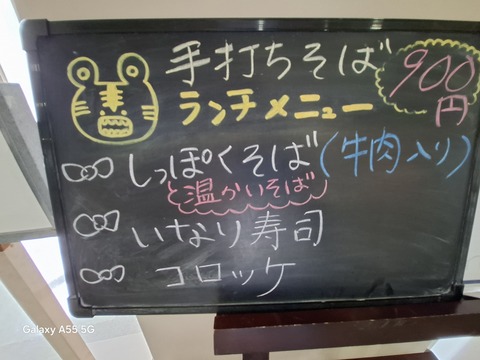 手打ちそば
900円
ランチメニュー
しっぽくそば(牛肉入り)
温かいそば
いなり寿司
コロッケ
Galaxy A55 5G